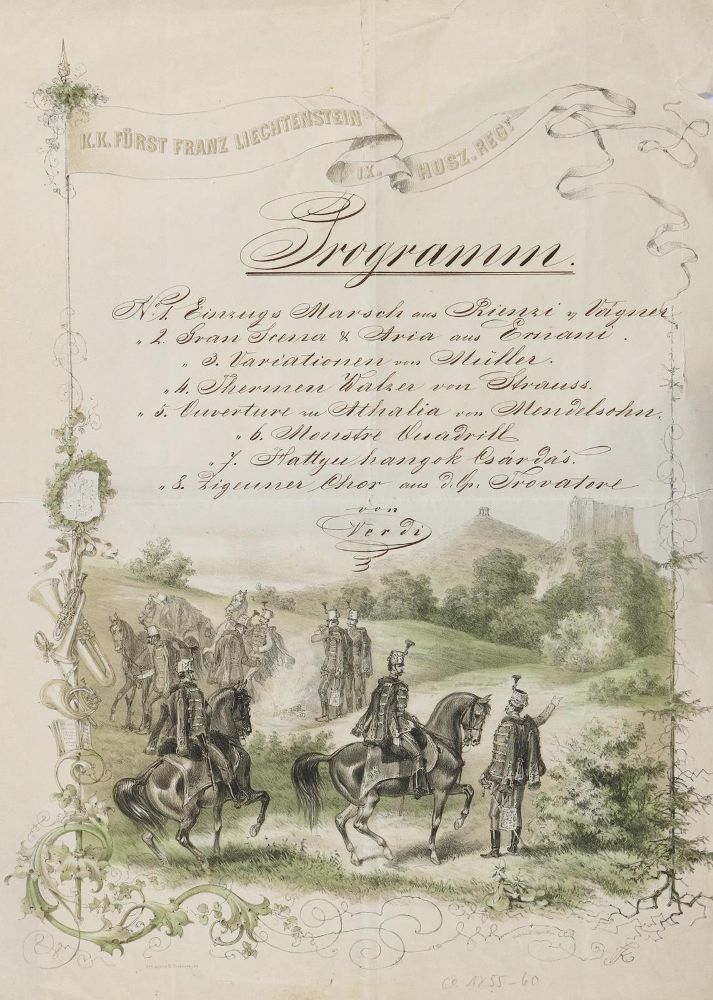 K.K. FÜRST FRANZ LIECHTENSTEIN IX. HUSZ. REGT
Programm.
No 1. Einzugs Marsch aus Rienzi v Vágner
" 2. Gran Scena & Aria aus Ernani.
" 3. Variationen von Müller.
" 4. Thermen Walzer von Strauss.
" 5. Ouverture zu Athalia von Mendelsohn.
" 6. Monstre Quadrill
" 7. Hattyu hangok Csárdás.
" 8. Zigeuner Chor aus d. Op. Trovatore
von
Verdi
ca 1855-60